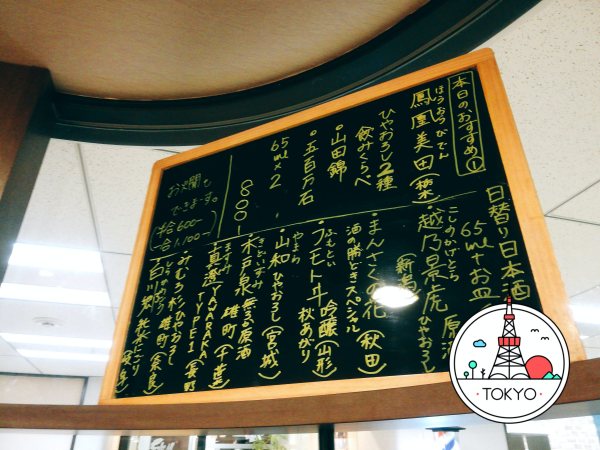 本日のおすすめ①
ほうおうびでん
鳳凰美田(栃木)
ひやおろし2種
飲みくらべ
・山田錦
・五百万石
65ml×2、
800-
お火間も
できます。
一合1.100-
日替り日本酒
65ml+お皿
こしのかげとら
・越乃景虎
ひやおろし
・まんさくの花(秋田)
酒の勝どきスペシャル
ふもとい
・フモトヰ吟醸(山形)
秋あがり
やまわ
・山和ひやおろし(宮城)
きどいずみ
・木戸泉
雄町(千葉)
ますみ
・真澄YAWARAKA
TYPE1(長野)
・みむろ杉ひやおろし
雄町(奈良)
TOKYO